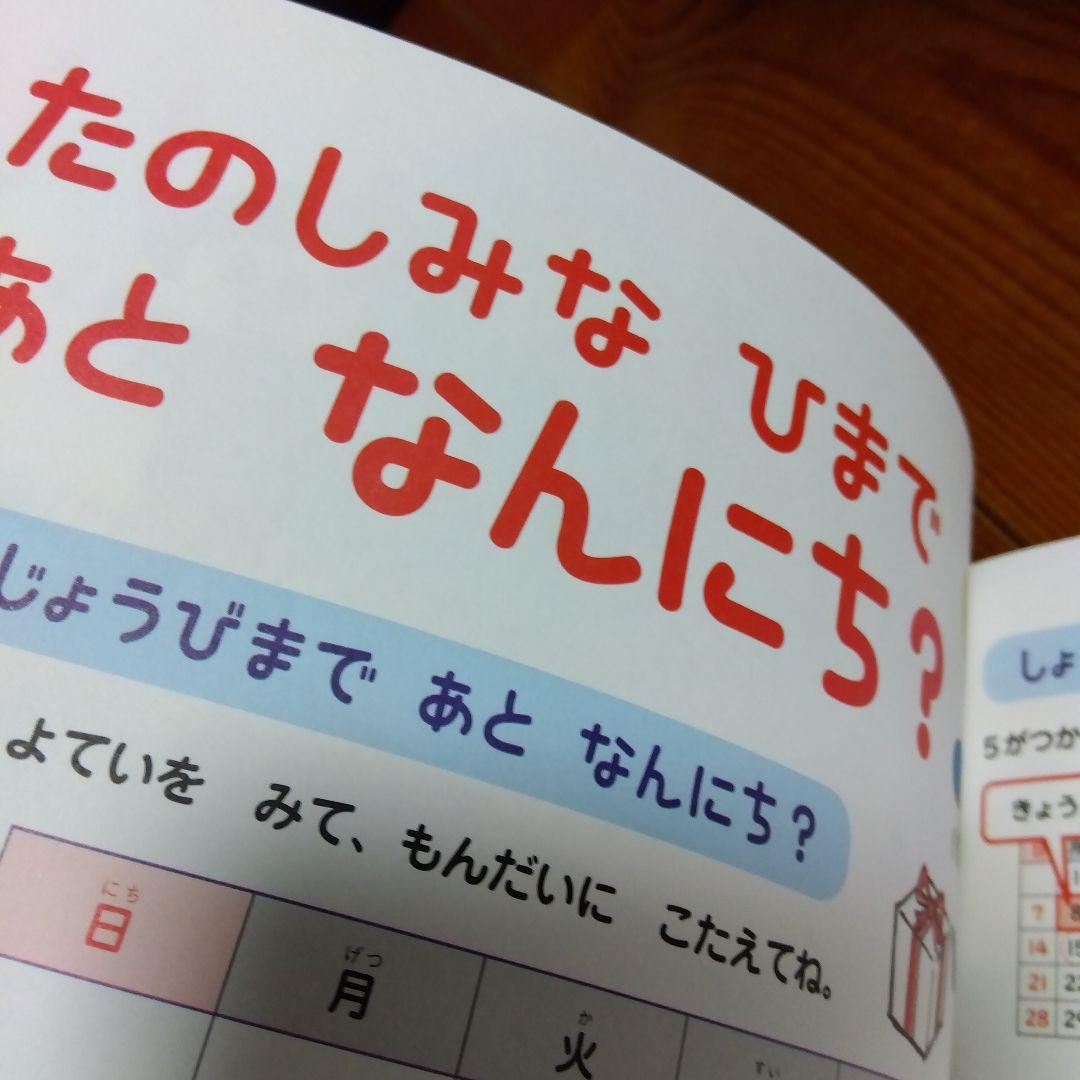 たのしみな ひまで
あと なんにち?
じょうびまで あと なんにち?
よていを みて、もんだいに こたえてね。
にち げつ か すい
日 月 火
しょ
5がつか
きょう
1
7 8
14 15
21 22
28 29